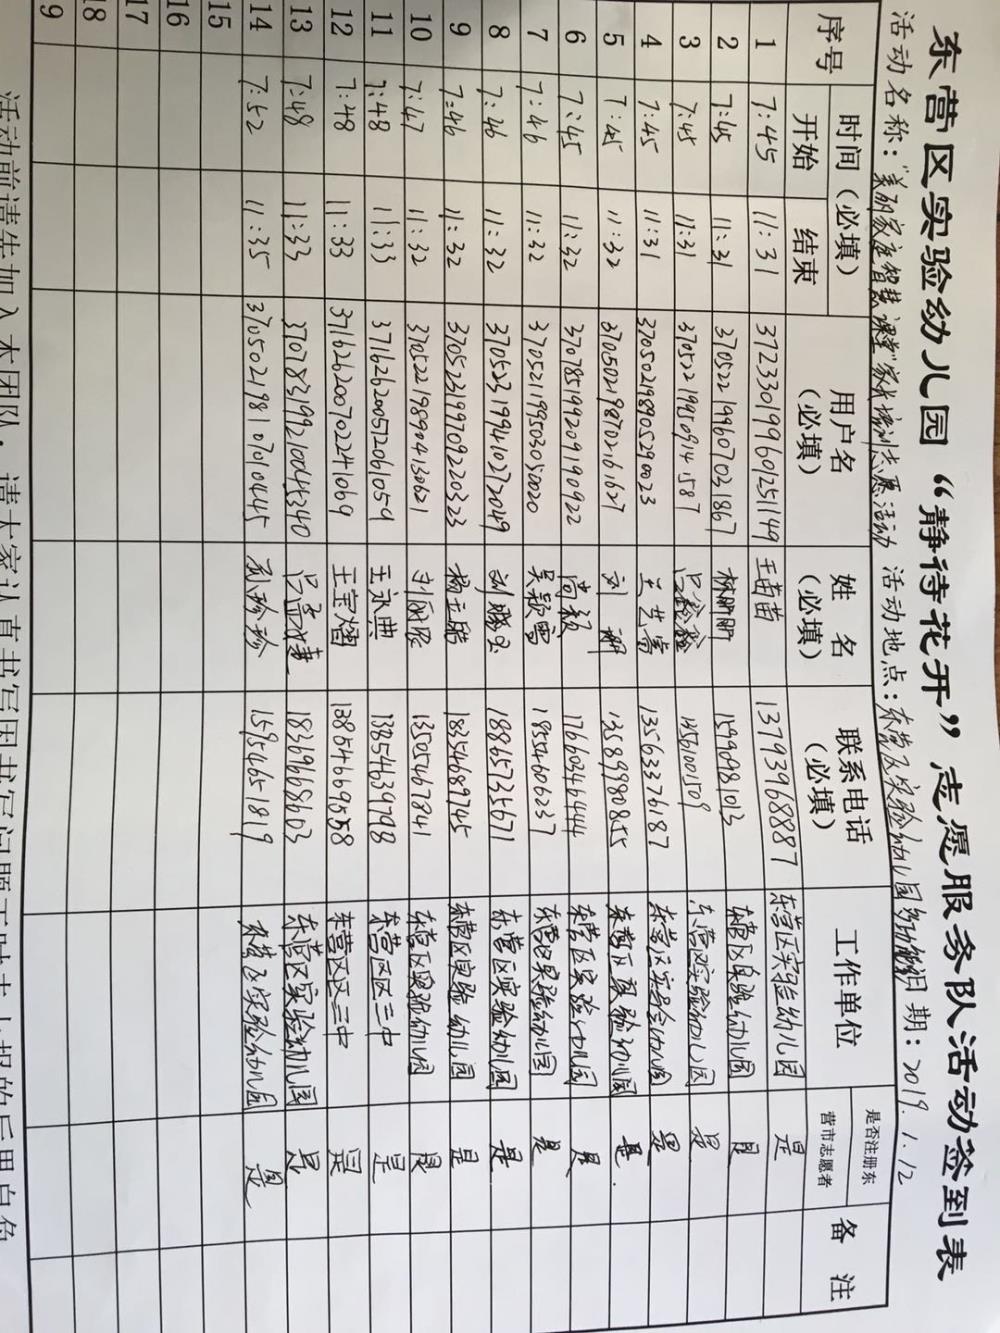 东营区实验幼儿园“静待花开”志愿服务队活动签到表
活动名称：“美丽家庭智慧课堂”家长培训志愿活动 活动地点：东营区实验幼儿园 期：2019.1.12
序号 时间（必填） 开始 结束 用户名（必填） 姓名（必填） 联系电话（必填） 工作单位 是否注册东营市志愿者 备注
1 7:45 11:31 372330199601251149 王苗苗 13793968887 东营区实验幼儿园 是
2 7:45 11:31 370522199607021867 林 15990981013 东营区实验幼儿园 是
3 7:45 11:31 吕 东营区实验幼儿园 是
4 7:45 11:31 370502198905290023 兰芝 13563376187 东营区实验幼儿园 是
5 7:45 11:32 370502198702161627 刘 13589980855 东营区实验幼儿园 是.
6 7:45 11:32 370785199209190922 尚 17660246444 东营区实验幼儿园 是
7 7:46 11:32 370521199503050020 吴颖雪 18554606237 东营区实验幼儿园 是
8 7:46 11:32 370523199410272049 刘 18865735671 东营区实验幼儿园 是
9 7:46 11:32 370523199709220323 杨玉皓 18354689745 东营区实验幼儿园 是
10 7:47 11:32 370522198904130621 13505467841 东营区实验幼儿园 是
11 7:48 11:33 371626200512061059 王永典 13854639798 东营区区三中 是
12 7:48 11:33 371626200702241069 王宝熠 东营区区三中 是
13 7:48 11:33 370783199210045340 吕 18369668603 东营区实验幼儿园 是
14 7:52 11:35 370502198107010445 孙珍珍 15954651819 东营区实验幼儿园 是
15
16
17
18
9
活动前请先加入本团队，请大家认真书写因书写问题